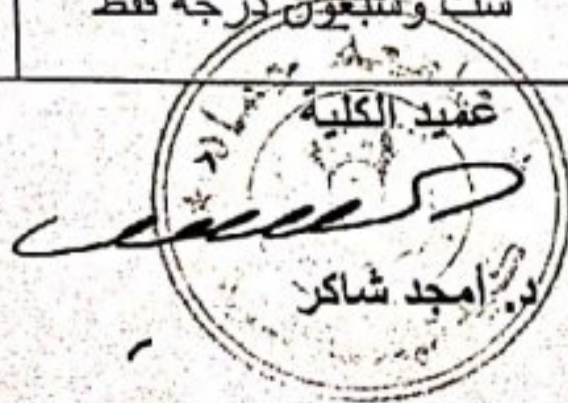 ست وسبعون درجة فقط
عميد الكلية
د. امجد شاكر